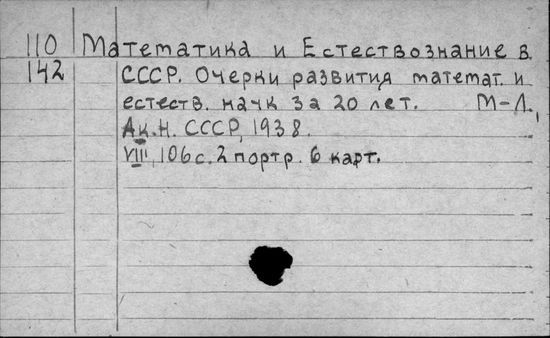 110 Математика и Естествознание в
142 СССР. Очерки развития математ. и
естеств. наук за 20 лет. М-Л.,
Ак.Н. СССР, 1938.
VIII, 106 с. 2 портр. 6 карт.